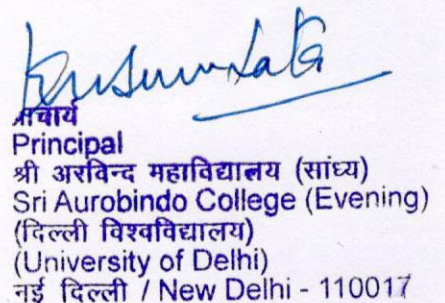 Kusum Lata
प्राचार्य
Principal
श्री अरविन्द महाविद्यालय (सांध्य)
Sri Aurobindo College (Evening)
(दिल्ली विश्वविद्यालय)
(University of Delhi)
नई दिल्ली / New Delhi - 110017